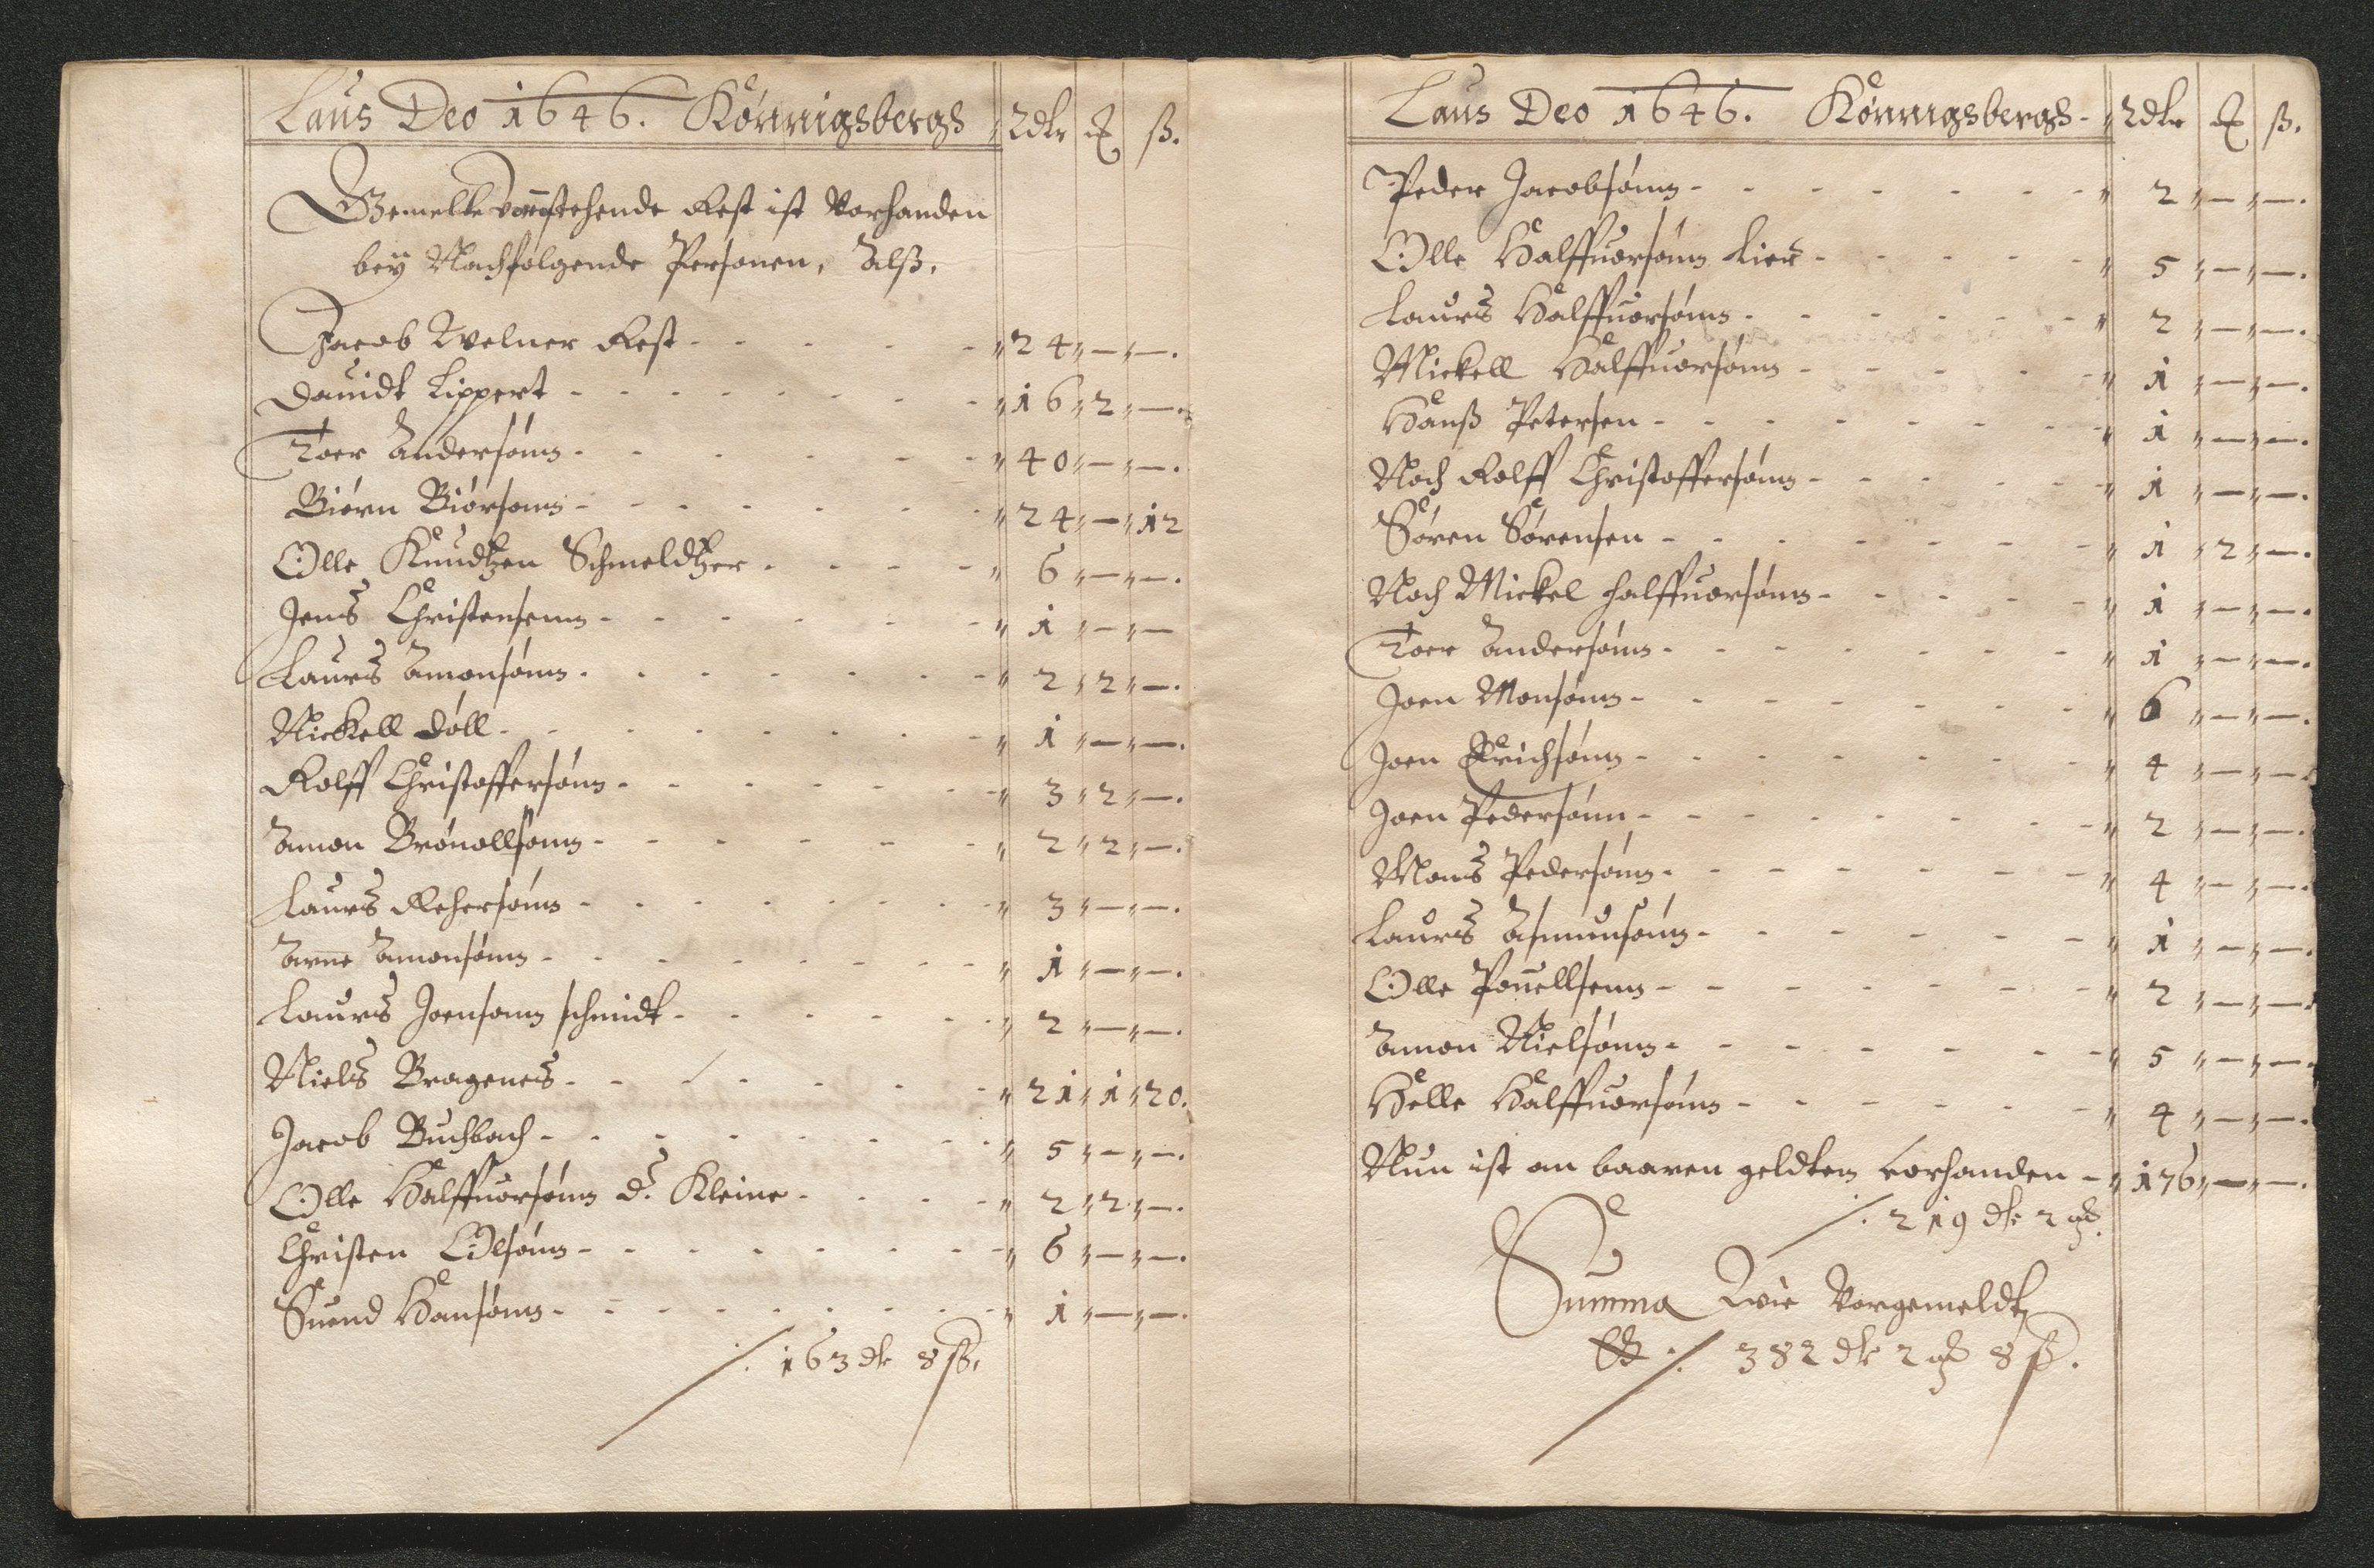 Laus Deo 1646. Königsbergh Rdlr ₰ ß.
Gemelte vornstehende Rest ist Vorhanden
bey Nachfolgende Personen, Alß.
Jacob Welner Rest - - - - - 24 — —.
Dauidt Lippert - - - - - - - 16 2 —.
Toer Andersönn - - - - - - 40 — —.
Biörn Biörsonn - - - - - - 24 — 12
Olle Knudtzen Schmeldtzer - - - - 6 — —.
Jens Christensenn - - - - - - 1 — —
Laurs Amonsönn - - - - - - - 2 2 —.
Nickell Döll - - - - - - - - 1 — —.
Rolff Christoffersönn - - - - - - 3 2 —.
Amon Brönollsönn - - - - - - 2 2 —.
Laurs Rehersönn - - - - - - - 3 — —.
Arne Amonsönn - - - - - - - - 1 — —.
Laurs Joensonn schmidt - - - - - - 2 — —.
Niels Bragenes - - - - - - - 21 1 20.
Jacob Buchbach - - - - - - - - 5 — —.
Olle Halffuorsönn d. Kleine - - - - 2 2 —.
Christen Olsönn - - - - - - - - 6 — —.
Suend Hansönn - - - - - - - - - 1 — —.
163 dlr 8 ß.
Laus Deo 1646. Königsbergh - Rdlr ₰ ß.
Peder Jacobsönn - - - - - - - - 2 — —.
Olle Halffuorsönn Lier - - - - - 5 — —.
Laurs Halffuorsönn - - - - - - 2 — —.
Mickell Halffuorsönn - - - - - 1 — —.
Hanß Petersen - - - - - - - - 1 — —.
Noch Rolff Christoffersönn - - - - - - 1 — —.
Sören Sörensen - - - - - - - - 1 2 —.
Noch Mickel Halffuorsönn - - - - - 1 — —.
Toer Andersönn - - - - - - - 1 — —.
Joen Monsönn - - - - - - - 6 — —.
Joen Erichsönn - - - - - - - 4 — —.
Joen Pedersönn - - - - - - - - 2 — —.
Mons Pedersönn - - - - - - - 4 — —.
Laurs Asmunsönn - - - - - - 1 — —.
Olle Pouellsenn - - - - - - - 2 — —.
Amon Nielsönn - - - - - - - 5 — —.
Helle Halffuorsönn - - - - - - 4 — —.
Nun ist an baaren geldten vorhanden - 176 — —.
219 dlr 2 ₰.
Summa Wie Vorgemeldt
382 dlr 2 ₰ 8 ß.